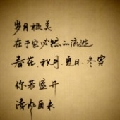 岁月极美
在于它必然的流逝
春花 秋月 夏日 冬雪
你若盛开
清风自来